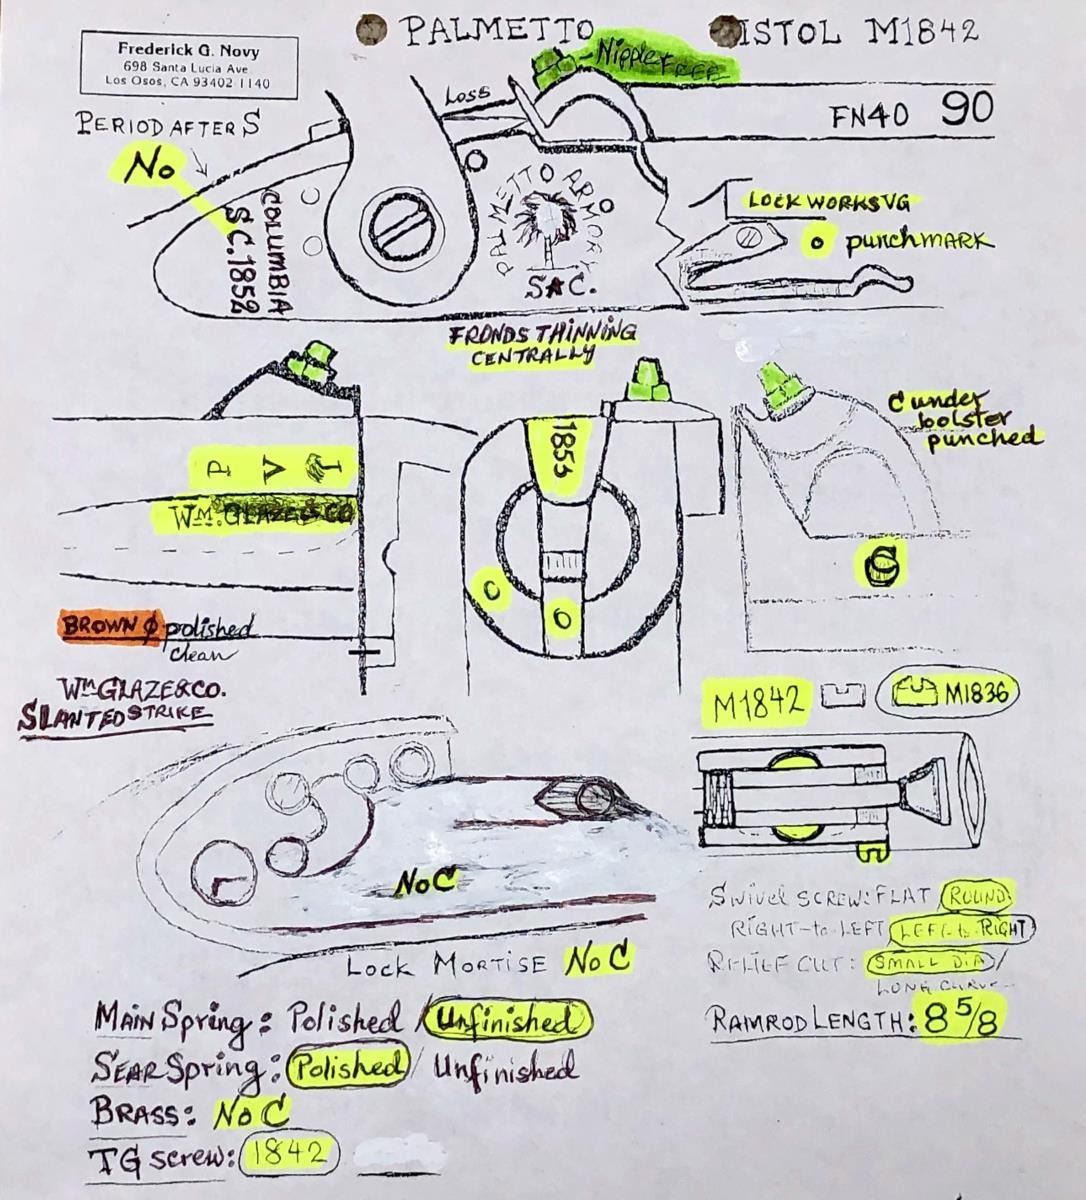 Frederick G. Novy
698 Santa Lucia Ave.
Los Osos, CA 93402-1140
PALMETTO ISTOL M1842
Nipple FREE
LOSS
FN40 90
PERIOD AFTER S
No
COLUMBIA
S C. 1852
PALMETTO ARMORY
S★C.
LOCK WORKS VG
o punch MARK
FRONDS THINNING
CENTRALLY
C under
bolster
punched
P V
WM. GLAZE & CO
1853
C
BROWN φ polished
clean
WM GLAZE & CO.
SLANTED STRIKE
M1842
M1836
No C
LOCK MORTISE No C
SWIVEL SCREW: FLAT / ROUND
RIGHT-to-LEFT / LEFT-to-RIGHT
RELIEF CUT: SMALL DIA /
LONG CURVE
RAMROD LENGTH: 8 5/8
MAIN Spring: Polished / Unfinished
SEAR Spring: Polished / Unfinished
BRASS: No C
TG screw: 1842